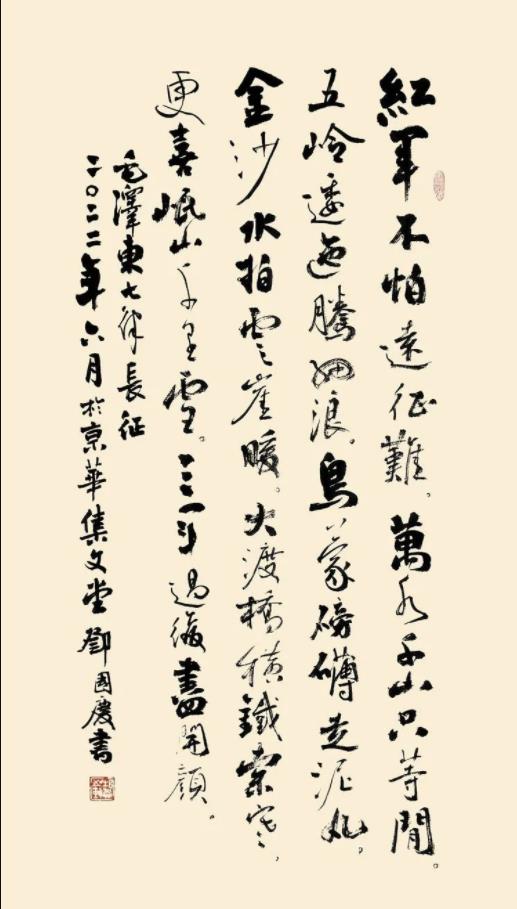 紅軍不怕遠征難。萬水千山只等閒。
五岭逶迤騰細浪。烏蒙磅礴走泥丸。
金沙水拍雲崖暖。大渡橋横鐵索寒。
更喜岷山千里雪。三軍過後盡開顔。
毛澤東七律長征
二〇二二年六月於京華集文堂鄧國慶書